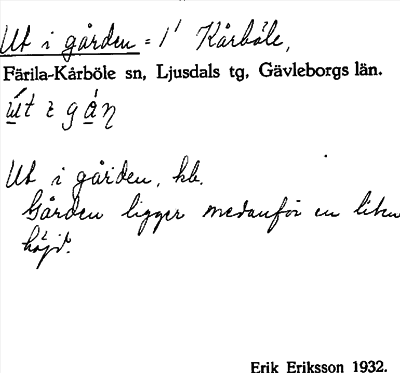 Ut i gården = 1' Kårböle,
Färila-Kårböle sn, Ljusdals tg, Gävleborgs län.
út ɩ gá̱ɳ
Ut i gården, hb.
Gården ligger nedanför en liten
höjd.
Erik Eriksson 1932.